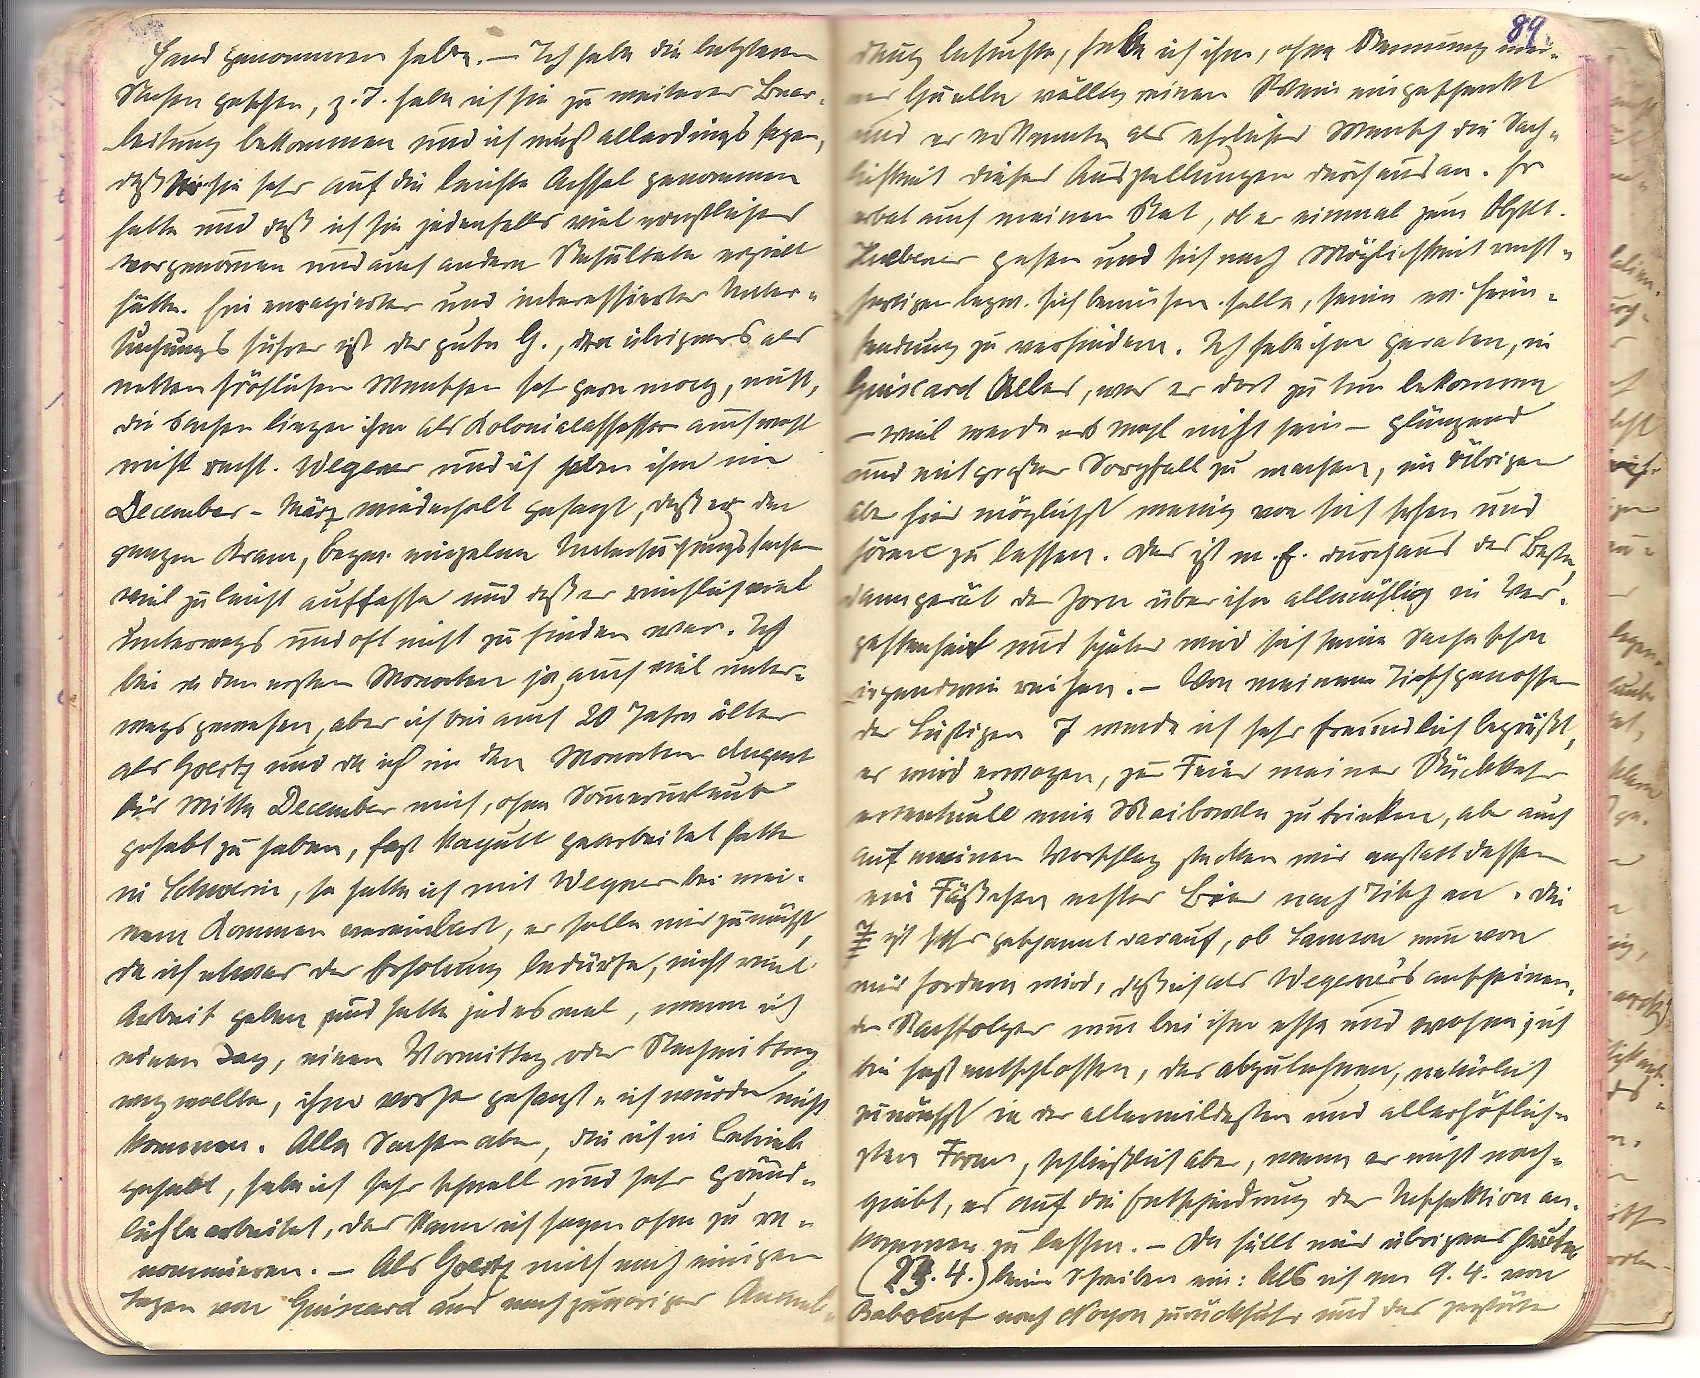 Hand genommen habe. — Ich habe die letzteren
Sachen gesehen, z. T. habe ich sie zu weiterer Bear-
beitung bekommen und ich muß allerdings sagen,
daß er sie sehr auf die leichte Achsel genommen
hatte und daß ich sie jedenfalls viel
vorgenommen und auch andere Resultate erzielt
hätte. Ein enragierter und interessierter Unter-
suchungsführer ist der gute G., den übrigens als
netten fröhlichen Menschen sehr gern mag, nicht,
die Sachen liegen ihm als Kolonialassessor auch wohl
nicht recht. Wegener und ich haben ihm im
December - März wiederholt gesagt, daß er den
ganzen Kram, bezw. einzelne Untersuchungssachen
viel zu leicht auffasse und daß er reichlich viel
unterwegs und oft nicht zu finden war. Ich
bin in den ersten Monaten ja auch viel unter-
wegs gewesen, aber ich bin auch 20 Jahre älter
als Goertz und da ich in den Monaten August
bis Mitte December mich, ohne Sommerurlaub
gehabt zu haben, fast kaputt gearbeitet hatte
in Schwerin, so hatte ich mit Wegener bei mei-
nem Kommen vereinbart, er solle mir zunächst,
da ich etwas der Erholung bedürfe, nicht viel
Arbeit geben und hatte jedesmal, wenn ich
einen Tag, einen Vormittag oder Nachmittag
weg wollte, ihm vorher gesagt, ich würde nicht
kommen. Alle Sachen aber, die ich in Betrieb
gehabt, habe ich sehr schnell und sehr gründ-
lich bearbeitet, das kann ich sagen ohne zu re-
nommieren. — Als Goertz mich nach einigen
Tagen von Guiscard aus nach
89.
besuchte, habe ich ihm, ohne Nennung mei-
ner Quelle völlig reinen Wein eingeschenkt
und er erkannte als ehrlicher Mensch die Sach-
lichkeit dieser Ausstellungen durchaus an. Er
erbat auch meinen Rat, ob er einmal zum Obstlt.
gehen und sich nach Möglichkeit recht-
fertigen bezw. sich bemühen solle, seine ev. Heim-
sendung zu verhindern. Ich habe ihm geraten, in
Guiscard Alles, was er dort zu tun bekomme
— viel werde es wohl nicht sein — glänzend
und mit großer Sorgfalt zu machen, im Übrigen
aber hier möglichst wenig von sich sehen und
hören zu lassen. Das ist m. E. durchaus das Beste,
dann gerät der Zorn über ihn allmählich in Ver-
gessenheit und später wird sich seine Sache schon
irgendwie reihen. — Von meinem Tischgenossen
der Lustigen 7 wurde ich sehr freundlich begrüßt,
es wird erwogen, zur Feier meiner Rückkehr
eventuell eine Maibowle zu trinken, aber auch
auf meinen Vorschlag stecken wir anstatt dessen
ein Fäßchen echtes Bier nach Tisch an. Die
ist sehr gespannt darauf, ob Samson nun von
mir fordern wird, daß ich als Wegeners anscheinen-
der Nachfolger nun bei ihm esse und wohne; ich
bin fest entschlossen, das abzulehnen, natürlich
zunächst in der allermildesten und allerhöflich-
sten Form, schließlich aber, wenn er nicht nach-
giebt, es auf die Entscheidung der Inspektion an-
kommen zu lassen. — Da fällt mir übrigens heute
(23. 4.) beim Schreiben ein: Als ich am 9. 4. von
Baboeuf nach Noyon zurückfuhr und das zerstörte